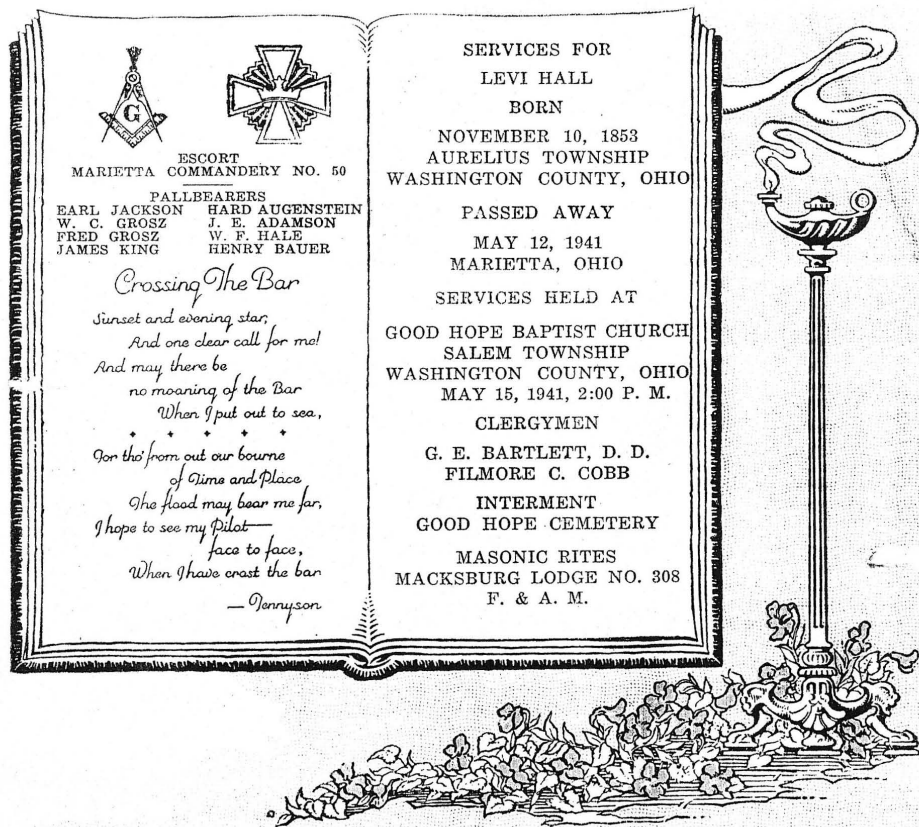 G
ESCORT
MARIETTA COMMANDERY NO. 50
PALLBEARERS
EARL JACKSON HARD AUGENSTEIN
W. C. GROSZ J. E. ADAMSON
FRED GROSZ W. F. HALE
JAMES KING HENRY BAUER
Crossing The Bar
Sunset and evening star,
And one clear call for me!
And may there be
no moaning of the Bar
When I put out to sea,
For tho' from out our bourne
of Time and Place
The flood may bear me far,
I hope to see my Pilot—
face to face,
When I have crost the bar
— Tennyson
SERVICES FOR
LEVI HALL
BORN
NOVEMBER 10, 1853
AURELIUS TOWNSHIP
WASHINGTON COUNTY, OHIO
PASSED AWAY
MAY 12, 1941
MARIETTA, OHIO
SERVICES HELD AT
GOOD HOPE BAPTIST CHURCH
SALEM TOWNSHIP
WASHINGTON COUNTY, OHIO
MAY 15, 1941, 2:00 P. M.
CLERGYMEN
G. E. BARTLETT, D. D.
FILMORE C. COBB
INTERMENT
GOOD HOPE CEMETERY
MASONIC RITES
MACKSBURG LODGE NO. 308
F. & A. M.